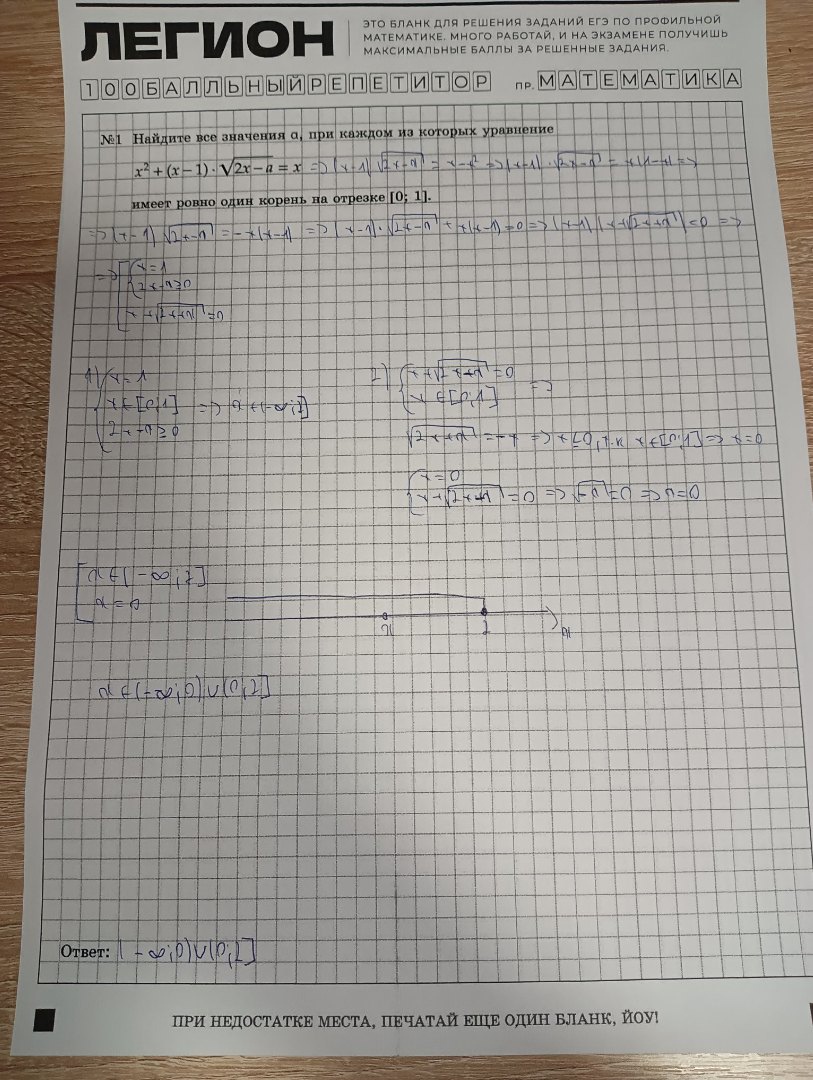 ЛЕГИОН
ЭТО БЛАНК ДЛЯ РЕШЕНИЯ ЗАДАНИЙ ЕГЭ ПО ПРОФИЛЬНОЙ
МАТЕМАТИКЕ. МНОГО РАБОТАЙ, И НА ЭКЗАМЕНЕ ПОЛУЧИШЬ
МАКСИМАЛЬНЫЕ БАЛЛЫ ЗА РЕШЕННЫЕ ЗАДАНИЯ.
100БАЛЛЬНЫЙРЕПЕТИТОР ПР. МАТЕМАТИКА
№1 Найдите все значения a, при каждом из которых уравнение
x² + (x − 1) · √(2x − a) = x => (x-1) √(2x-a) = x-x² => (x-1) · √(2x-a) = x(1-x) =>
имеет ровно один корень на отрезке [0; 1].
=> (x-1) √(2x-a) = -x(x-1) => (x-1) · √(2x-a) + x(x-1) = 0 => (x-1) (x+√(2x+a)) = 0 =>
=> x = 1
2x-a≥0
x+√(2x+a) = 0
1) x = 1
x∈[0;1] => a∈(-∞;2]
2x-a≥0
2) x+√(2x+a) = 0
x∈[0;1] =>
√(2x+a) = -x => x=0
x=0
x+√(2x+a) = 0 => √-a = 0 => a=0
a∈(-∞;2]
a=0
2 a
a∈(-∞;0)∪(0;2]
Ответ: (-∞;0)∪(0;2]
ПРИ НЕДОСТАТКЕ МЕСТА, ПЕЧАТАЙ ЕЩЕ ОДИН БЛАНК, ЙОУ!